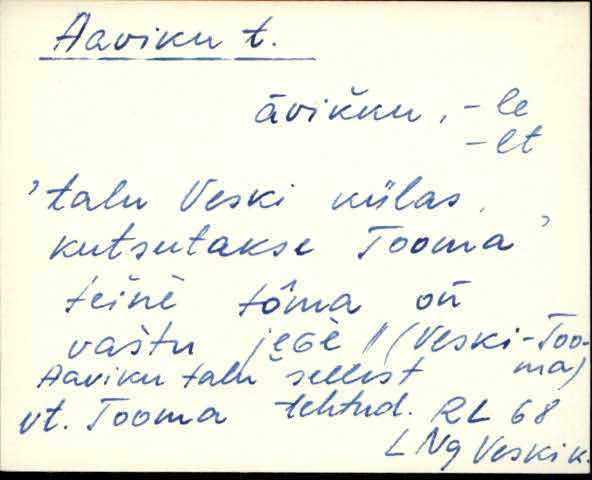 Aaviku t.
āvikku, -le
-lt
'talu Veski külas,
kutsutakse Tooma'
teine tôma oń
vaštu jege // (Veski-Too-
ma)
Aaviku talu sellest
vt. Tooma tehtud. RL 68
L Ng Veski k.